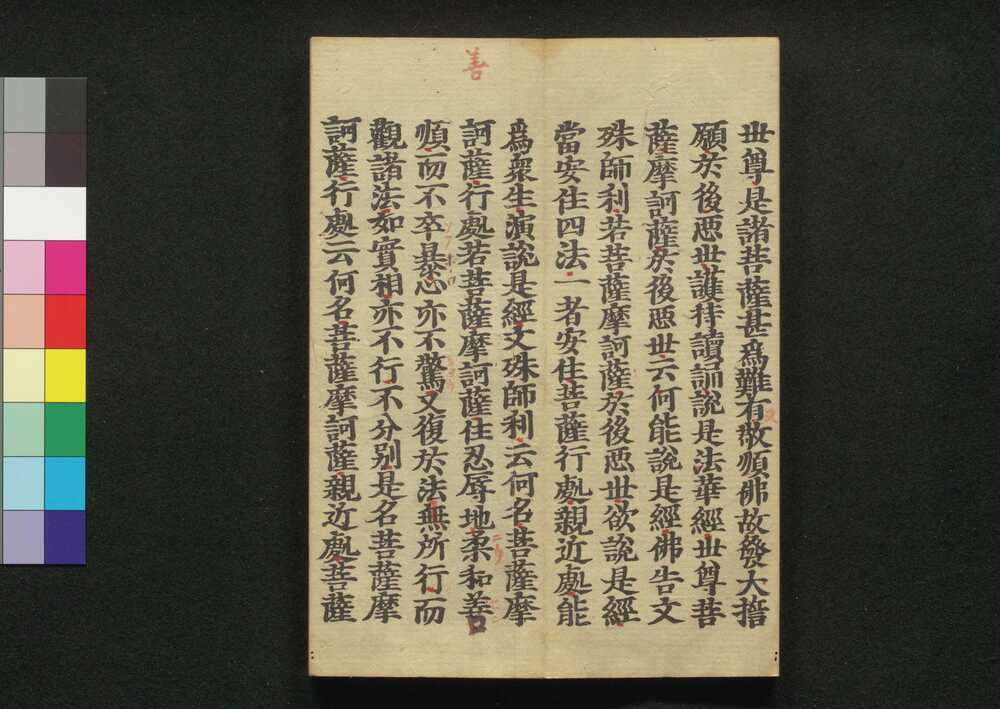 世尊是諸菩薩甚爲難有敬順佛故發大擔
願於後惡世護持讀誦說是法華經世尊菩
薩摩訶薩於後惡世云何能說是經佛告文
殊師利若菩薩摩訶薩於後惡世欲說是經
當安住四法一者安住菩薩行處親近處能
爲衆生演說是經文殊師利云何名菩薩摩
訶薩行處若菩薩摩訶薩住忍辱地柔和善
順而不卒暴心亦不驚又復於法無所行而
觀諸法如實相亦不行不分別是名菩薩摩
訶薩行處云何名菩薩摩訶薩親近處菩薩
善